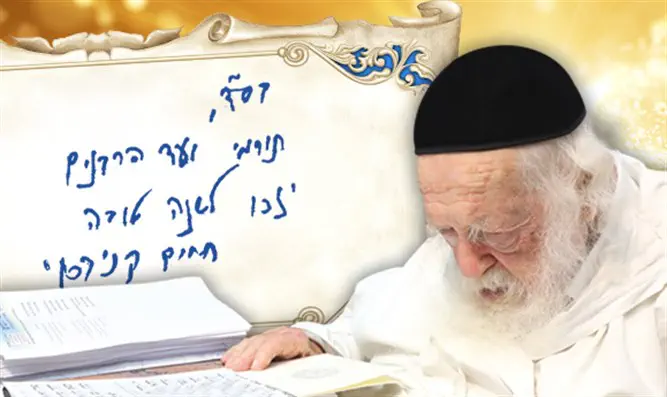 בס"ד,
תורמי ועד הרבנים
יזכו לשנה טובה
חיים קניבסקי